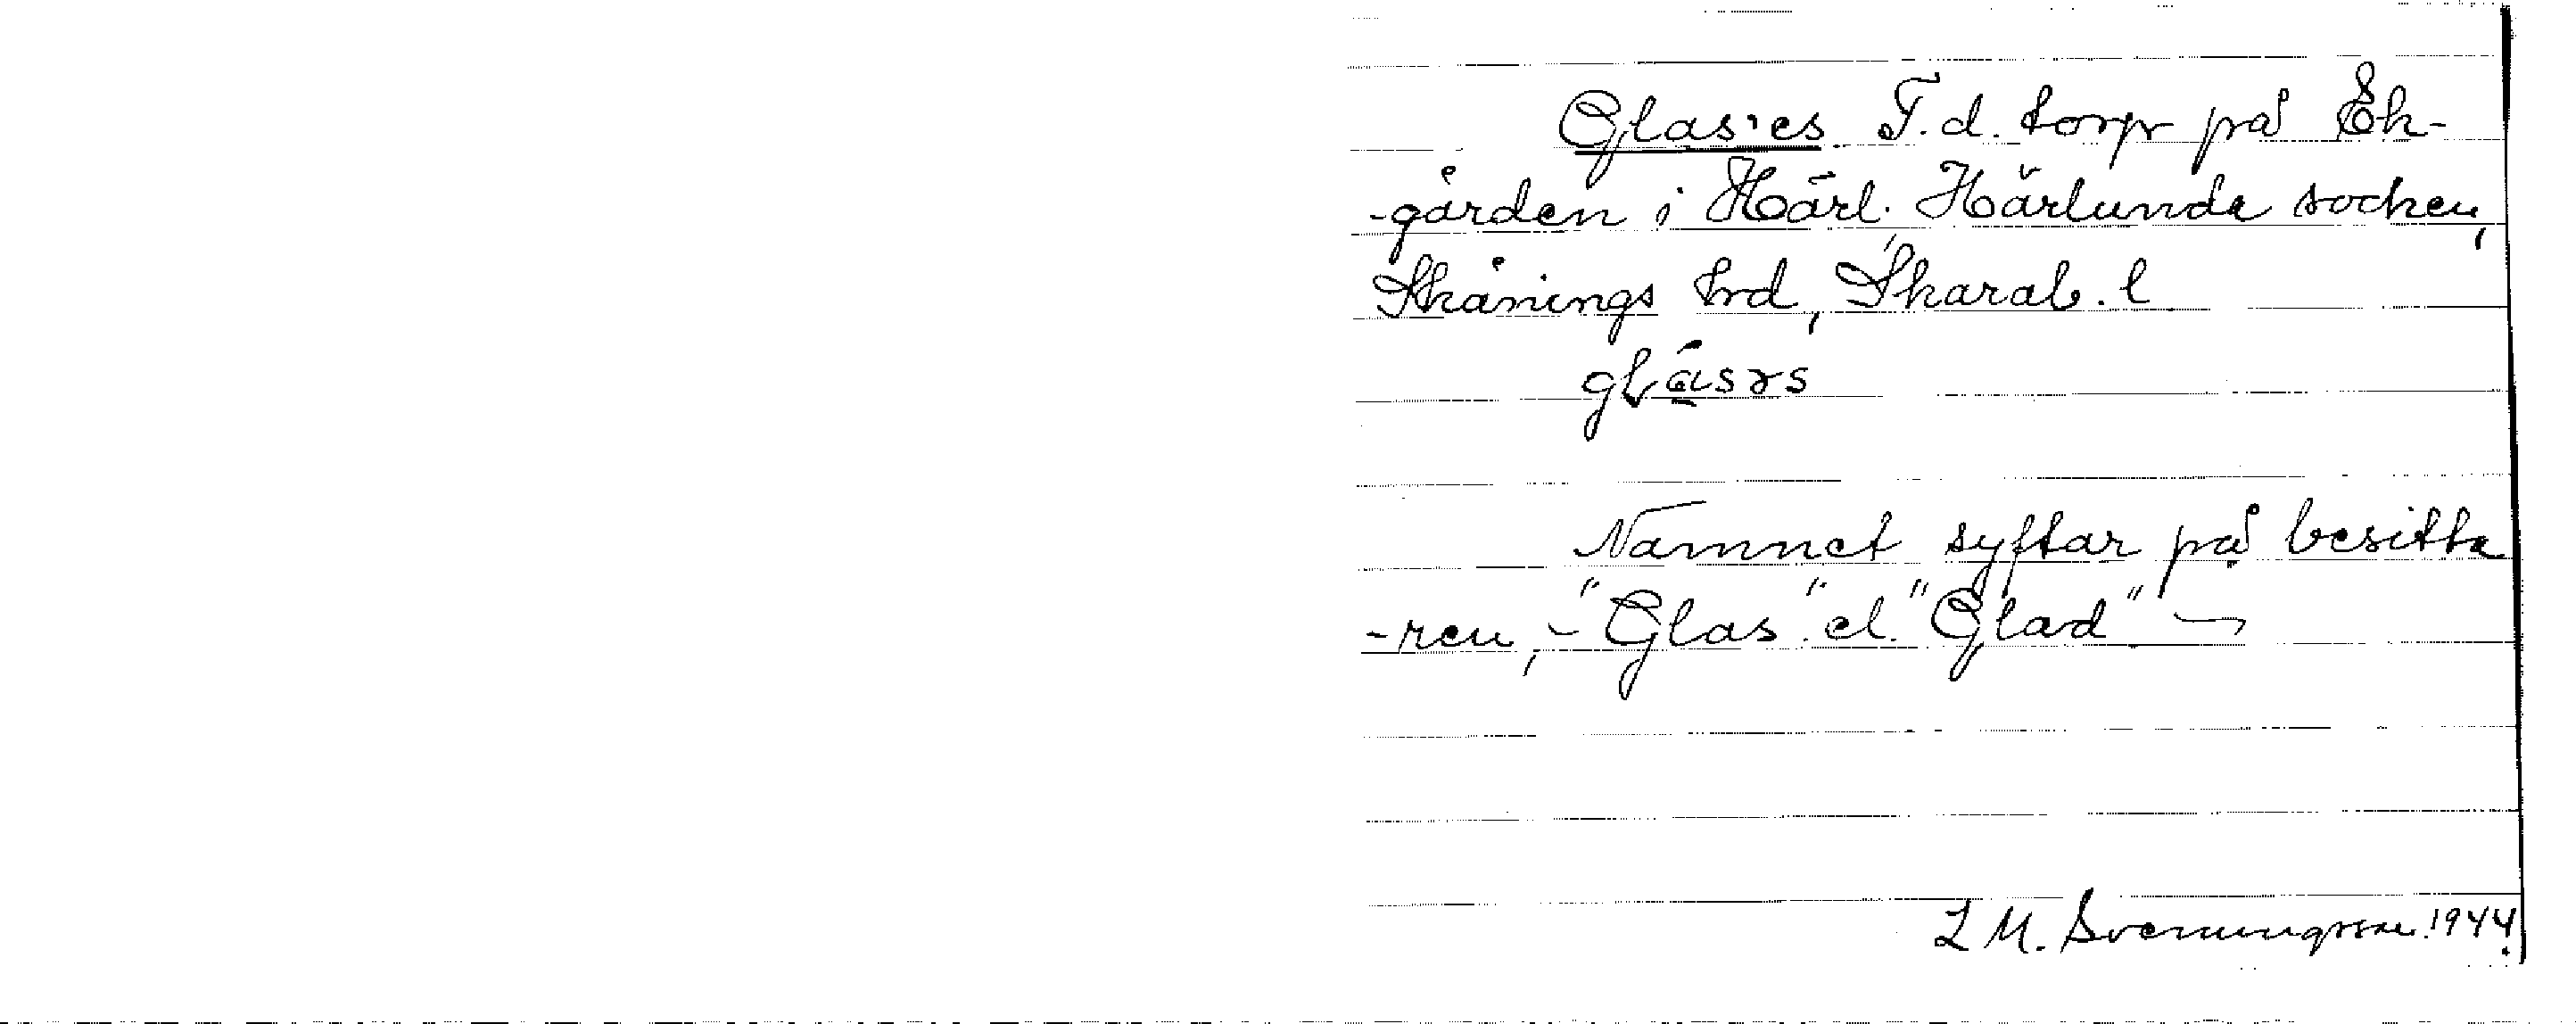 Glas·es F.d. torp på Ek-
-gården i Härl. Härlunda socken,
Skånings hrd, Skarab. l
glasrs
Namnet syftar på besitta
-ren, - "Glas" el. "Glad" -
L M. Svenningsson. 1944.